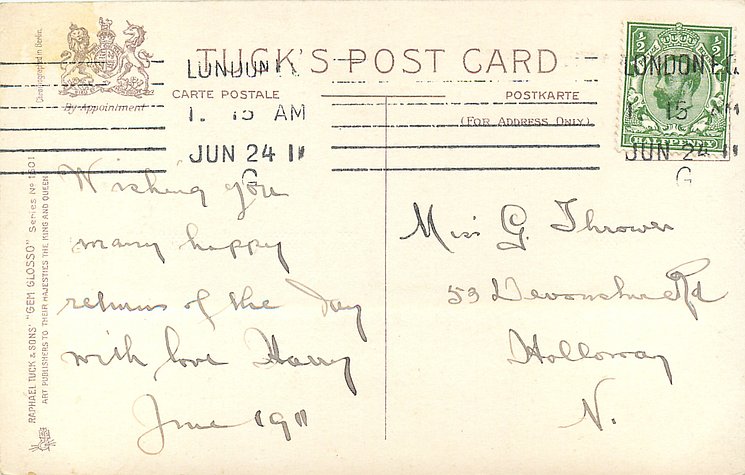 TUCK'S POST CARD
CARTE POSTALE
POSTKARTE
(FOR ADDRESS ONLY)
By Appointment
Chromographed in Berlin.
RAPHAEL TUCK & SONS' "GEM GLOSSO" Series No 1601
ART PUBLISHERS TO THEIR MAJESTIES THE KING AND QUEEN
LONDON
15 AM
JUN 24 11
G
1/2 1/2
LONDON
15 AM
JUN 24 11
G
Wishing you
many happy
returns of the day
with love Harry
June 1911
Miss G. Thrower
53 Devonshire Rd
Holloway
N.